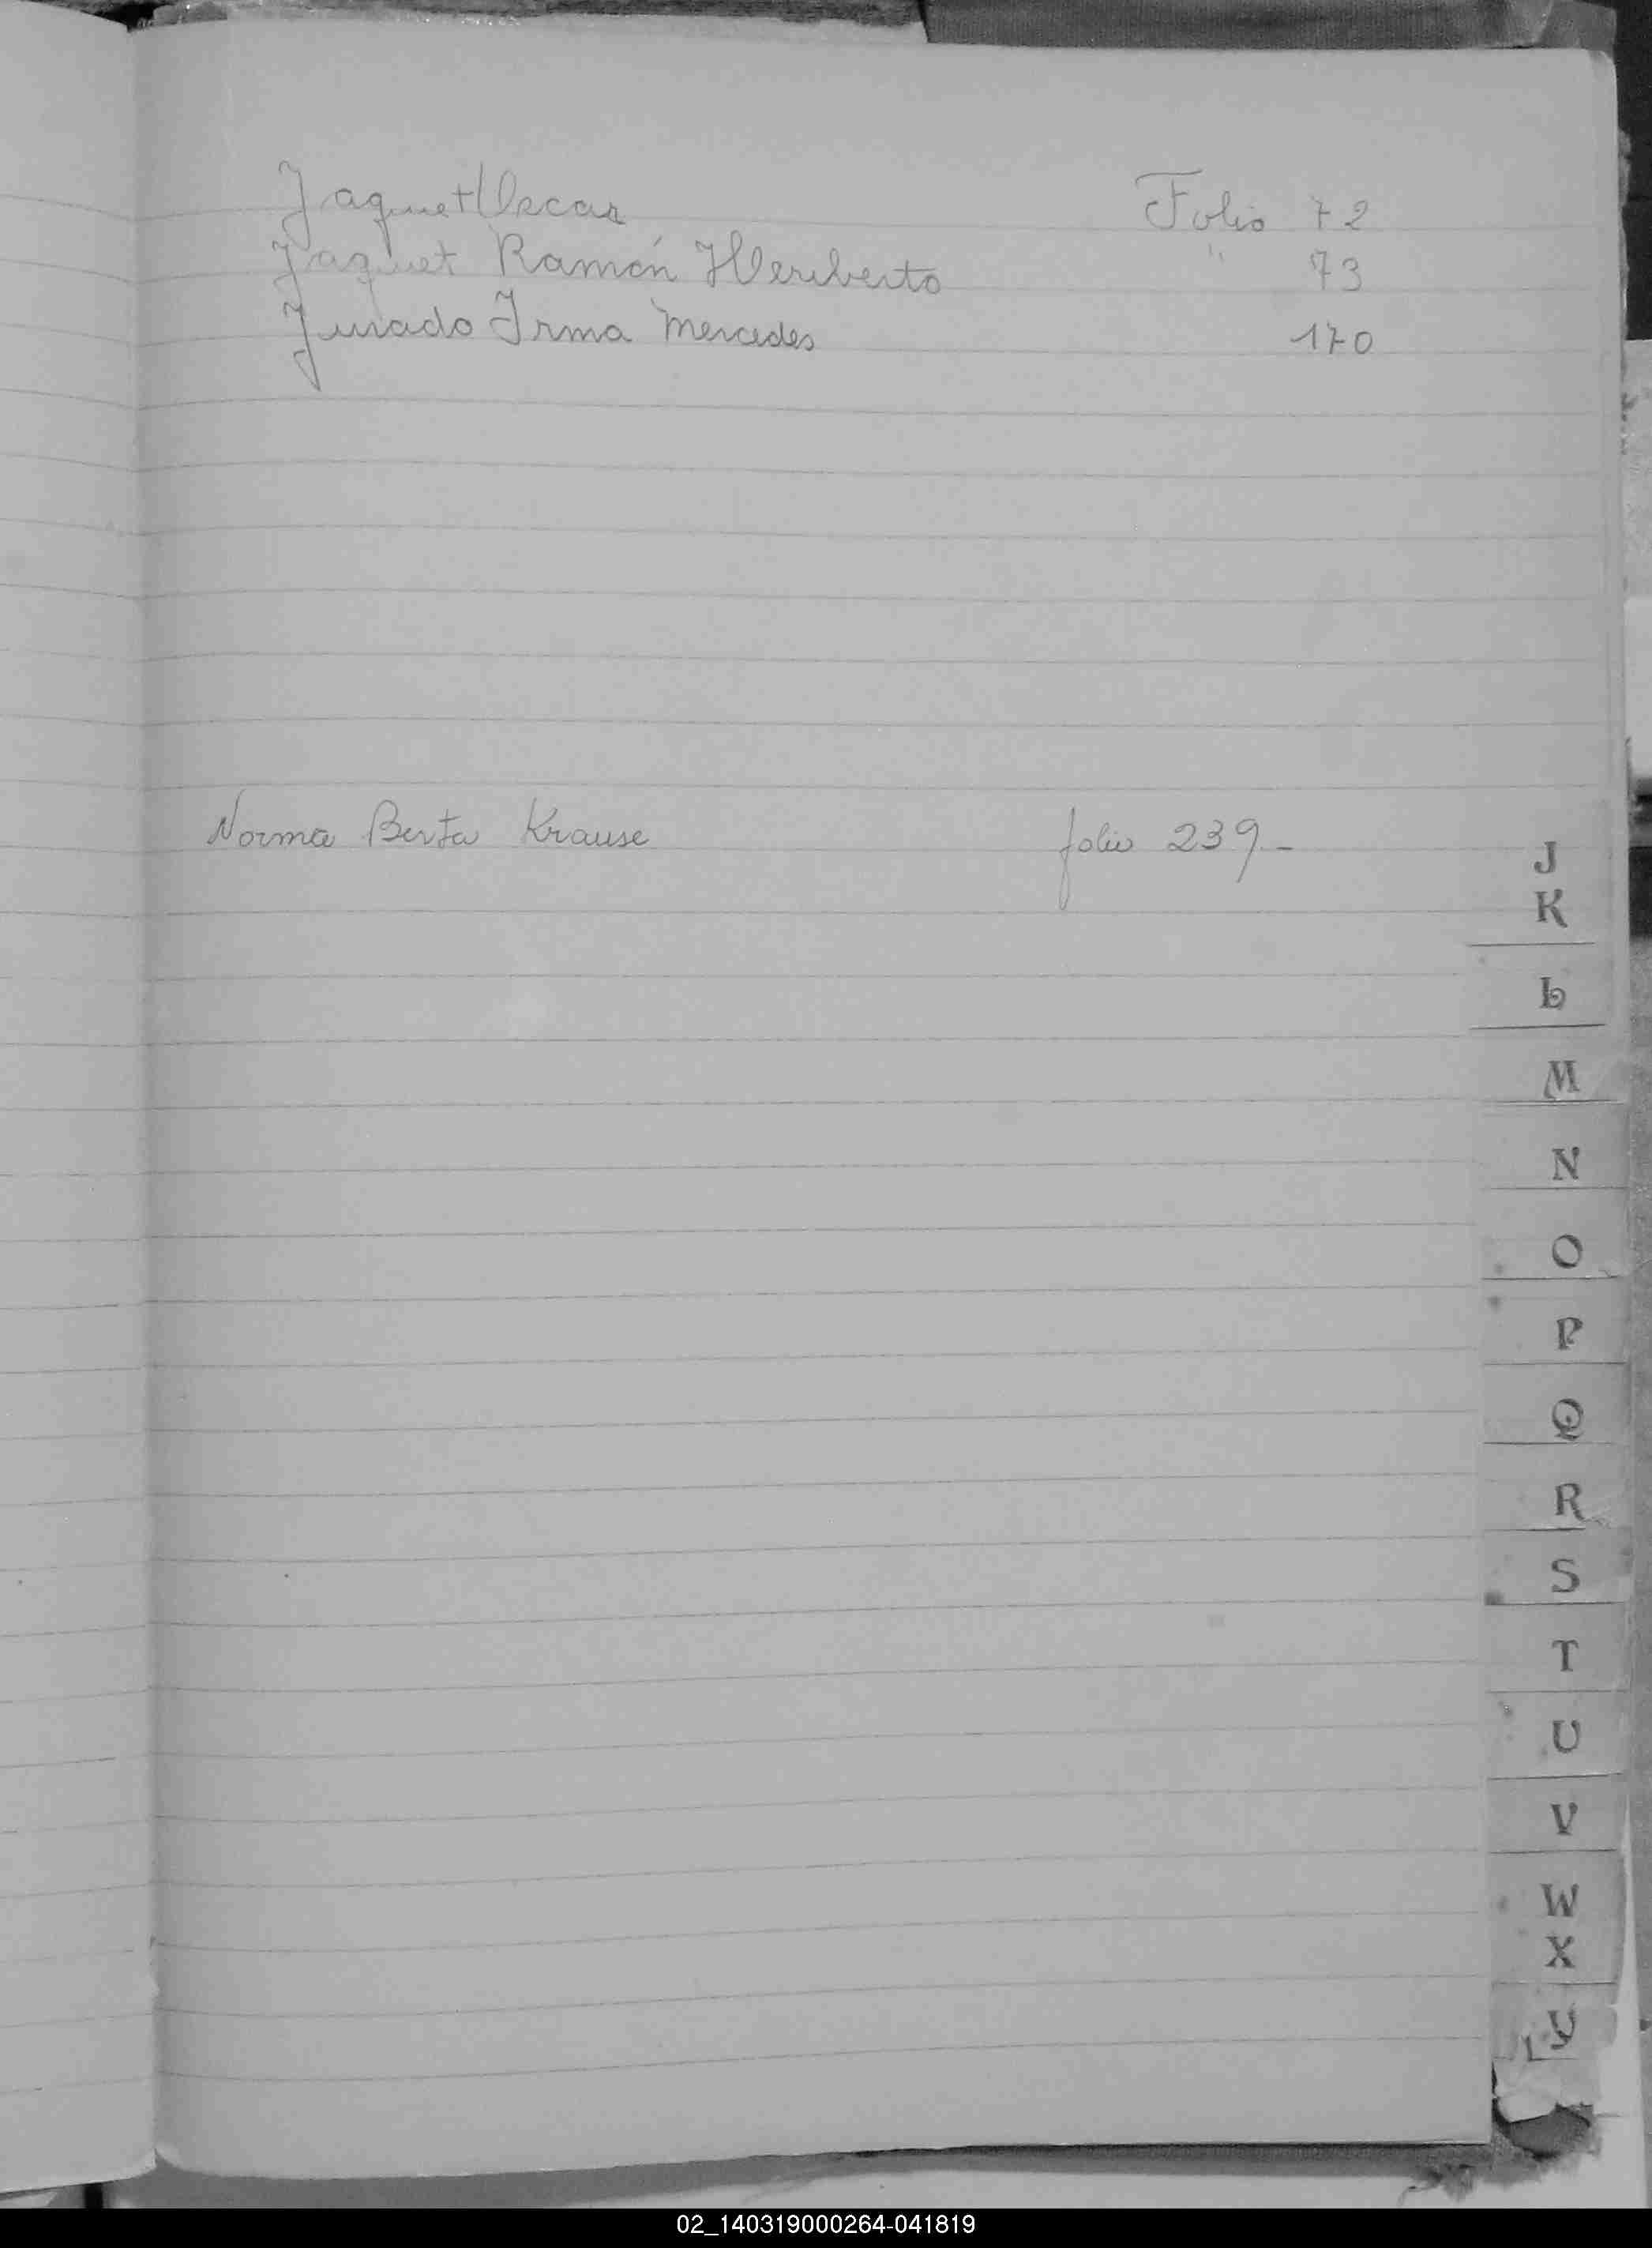 Jaquet Oscar Folio 72
Jaquet Ramón Heriberto " 73
Jurado Irma Mercedes 170
Norma Berta Krause folio 239.-
J
K
L
M
N
O
P
Q
R
S
T
U
V
W
X
Y
02_140319000264-041819